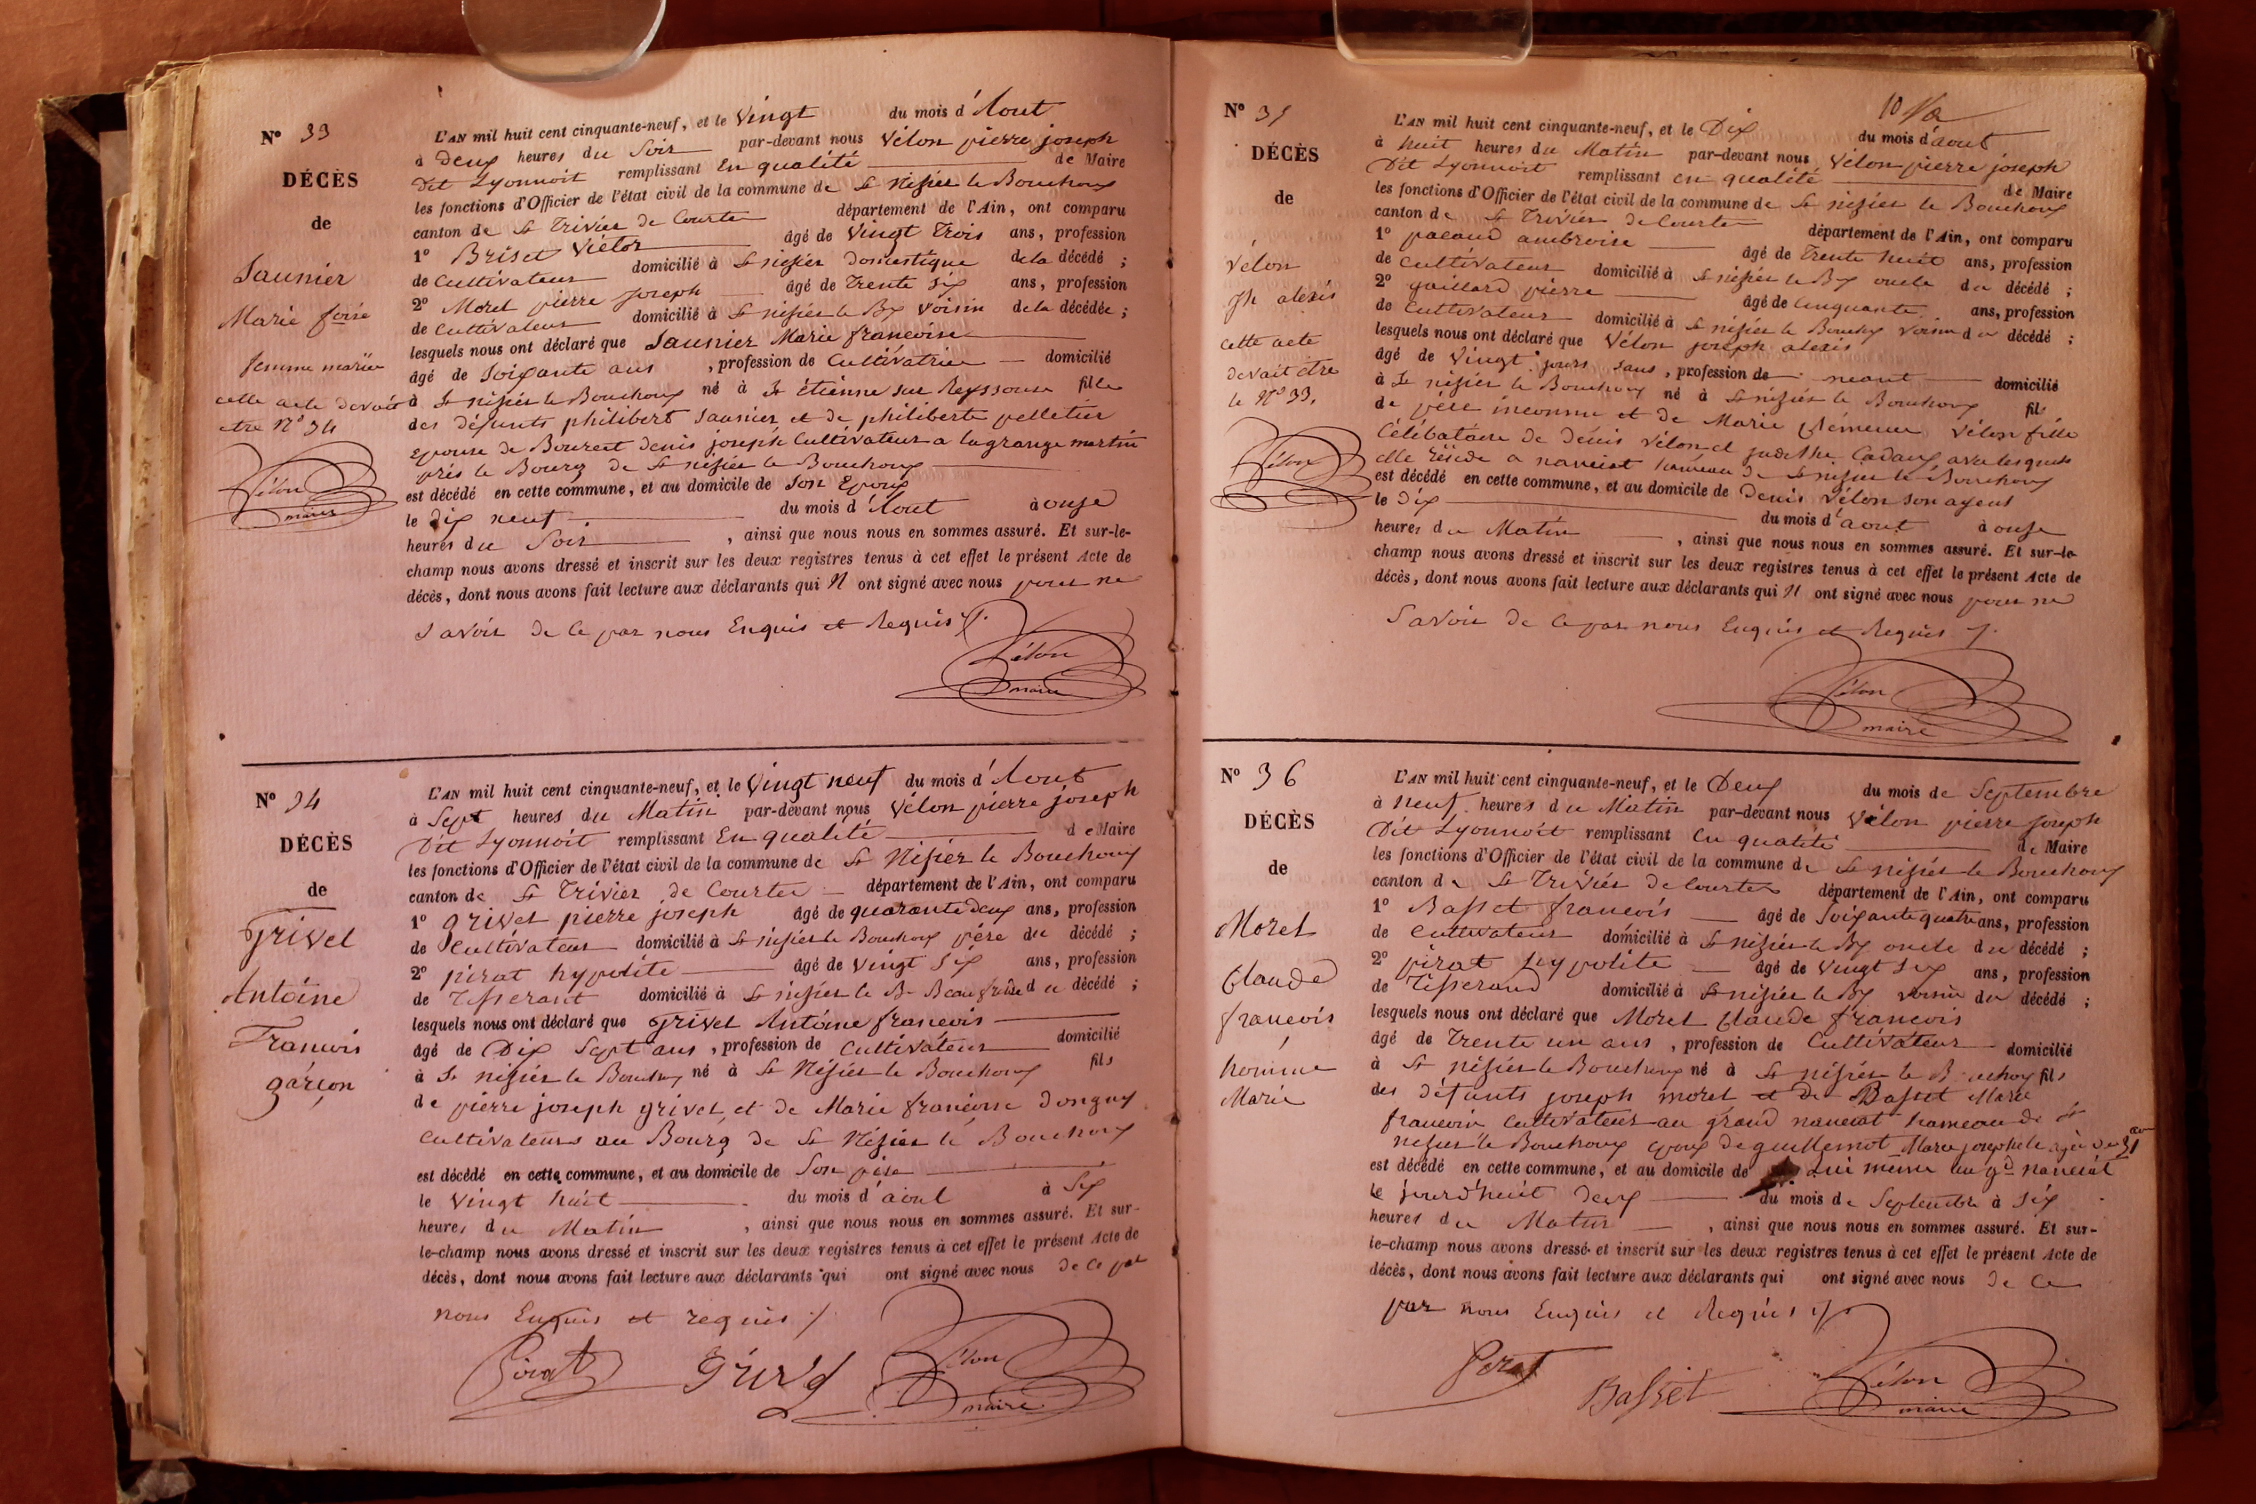 N° 33
DÉCÈS
de
Saunier
Marie fçoise
femme mariée
cette acte devait
etre N° 34
Vélon
maire
L'AN mil huit cent cinquante-neuf, et le Vingt du mois d'Aout
à Deux heures du Soir par-devant nous Vélon pierre joseph
Dit Lyonnoit remplissant En qualité de Maire
les fonctions d'Officier de l'état civil de la commune de St Nisier le Bouchoux
canton de St Trivier de Courte département de l'Ain, ont comparu
1° Briset Victor âgé de Vingt Trois ans, profession
de Cultivateur domicilié à St nisier Domestique de la décédé ;
2° Morel pierre Joseph âgé de Trente Six ans, profession
de Cultivateur domicilié à St nisier le Bx Voisin de la décédée ;
lesquels nous ont déclaré que Saunier Marie francoise
âgé de Soixante ans , profession de Cultivatrice domicilié
à St nisier le Bouchoux né à St étienne sur Reyssouse fille
des défunts philibert Saunier et de philiberte pelletier
Epouse de Bourcet denis joseph Cultivateur a lagrange martin
près le Bourg de St nisier le Bouchoux
est décédé en cette commune, et au domicile de Son Epoux
le Dix neuf du mois d'Aout à onze
heures du Soir , ainsi que nous nous en sommes assuré. Et sur-le-
champ nous avons dressé et inscrit sur les deux registres tenus à cet effet le présent Acte de
décès, dont nous avons fait lecture aux déclarants qui N ont signé avec nous pour ne
Savoir de Ce par nous Enquis et Requis ./.
Vélon
maire
N° 34
DÉCÈS
de
Grivel
Antoine
Francois
garçon
L'AN mil huit cent cinquante-neuf, et le Vingt neuf du mois d'Aout
à Sept heures du Matin par-devant nous Vélon pierre joseph
Dit Lyonnoit remplissant En qualité de Maire
les fonctions d'Officier de l'état civil de la commune de St Nisier le Bouchoux
canton de St Trivier de Courte département de l'Ain, ont comparu
1° Grivel pierre joseph âgé de quarante deux ans, profession
de Cultivateur domicilié à St nisier le Bouchoux père du décédé ;
2° pirat hypolite âgé de Vingt Six ans, profession
de Tisserant domicilié à St nisier le B. Beau frère du décédé ;
lesquels nous ont déclaré que Grivel Antoine francois
âgé de Dix Sept ans , profession de Cultivateur domicilié
à St nisier le Bouchoux né à St Nisier le Bouchoux fils
de pierre joseph grivel et de Marie francoise Donguy
Cultivateurs au Bourg de St Nisier le Bouchoux
est décédé en cette commune, et au domicile de Son père
le Vingt huit du mois d'aout à Six
heures du Matin , ainsi que nous nous en sommes assuré. Et sur-
le-champ nous avons dressé et inscrit sur les deux registres tenus à cet effet le présent Acte de
décès, dont nous avons fait lecture aux déclarants qui ont signé avec nous de Ce par
nous Enquis et requis ./.
Pirat Grivel Vélon
maire
N° 35
DÉCÈS
de
Vélon
Jh alexis
cette acte
devait être
le N° 33.
Vélon
L'AN mil huit cent cinquante-neuf, et le Dix du mois d'aout
à huit heures du Matin par-devant nous Vélon pierre joseph
Dit Lyonnoit remplissant en qualité de Maire
les fonctions d'Officier de l'état civil de la commune de St nisier le Bouchoux
canton de St Trivier de Courte département de l'Ain, ont comparu
1° pacaud ambroise âgé de Trente huit ans, profession
de Cultivateur domicilié à St nisier le Bx oncle du décédé ;
2° gaillard pierre âgé de Cinquante ans, profession
de Cultivateur domicilié à St nisier le Bouchx Voisin du décédé ;
lesquels nous ont déclaré que Vélon joseph alexis
âgé de Vingt jours sans , profession de neant domicilié
à St nisier le Bouchoux né à St nisier le Bouchoux fils
de père inconnu et de Marie Clémence Vélon fille
Célibataire de denis Vélon et judithe Cadaux, avec lesquels
elle reside a naneiat hameau de St nisier le Bouchoux
est décédé en cette commune, et au domicile de Denis Vélon Son ayeul
le dix du mois d'aout à onze
heures du Matin , ainsi que nous nous en sommes assuré. Et sur-le-
champ nous avons dressé et inscrit sur les deux registres tenus à cet effet le présent Acte de
décès, dont nous avons fait lecture aux déclarants qui N ont signé avec nous pour ne
Savoir de Ce par nous Enquis et Requis ./.
Vélon
maire
N° 36
DÉCÈS
de
Morel
Claude
francois
homme
Marié
L'AN mil huit cent cinquante-neuf, et le Deux du mois de Septembre
à Neuf heures du Matin par-devant nous Vélon pierre Joseph
Dit Lyonnoit remplissant En qualité de Maire
les fonctions d'Officier de l'état civil de la commune de St nisier le Bouchoux
canton de St Trivier de Courtes département de l'Ain, ont comparu
1° Basset francois âgé de Soixante quatre ans, profession
de Cultivateur domicilié à St nisier le Bx oncle du décédé ;
2° pirat hypolite âgé de Vingt Six ans, profession
de Tisserand domicilié à St nisier le Bx voisin du décédé ;
lesquels nous ont déclaré que Morel Claude francois
âgé de Trente un ans , profession de Cultivateur domicilié
à St nisier le Bouchoux né à St nisier le Bouchoux fils
des défunts joseph morel et de Basset Marie
francoise Cultivateur au grand naneiat hameau de St
nisier le Bouchoux epoux de guillemot Marie josephte agée de 31 an
est décédé en cette commune, et au domicile de Lui meme au gd naneiat
le jourd'huit deux du mois de Septembre à Six
heures du Matin , ainsi que nous nous en sommes assuré. Et sur-
le-champ nous avons dressé et inscrit sur les deux registres tenus à cet effet le présent Acte de
décès, dont nous avons fait lecture aux déclarants qui ont signé avec nous de Ce
par nous Enquis et Requis ./.
Pirat Basset Vélon
maire